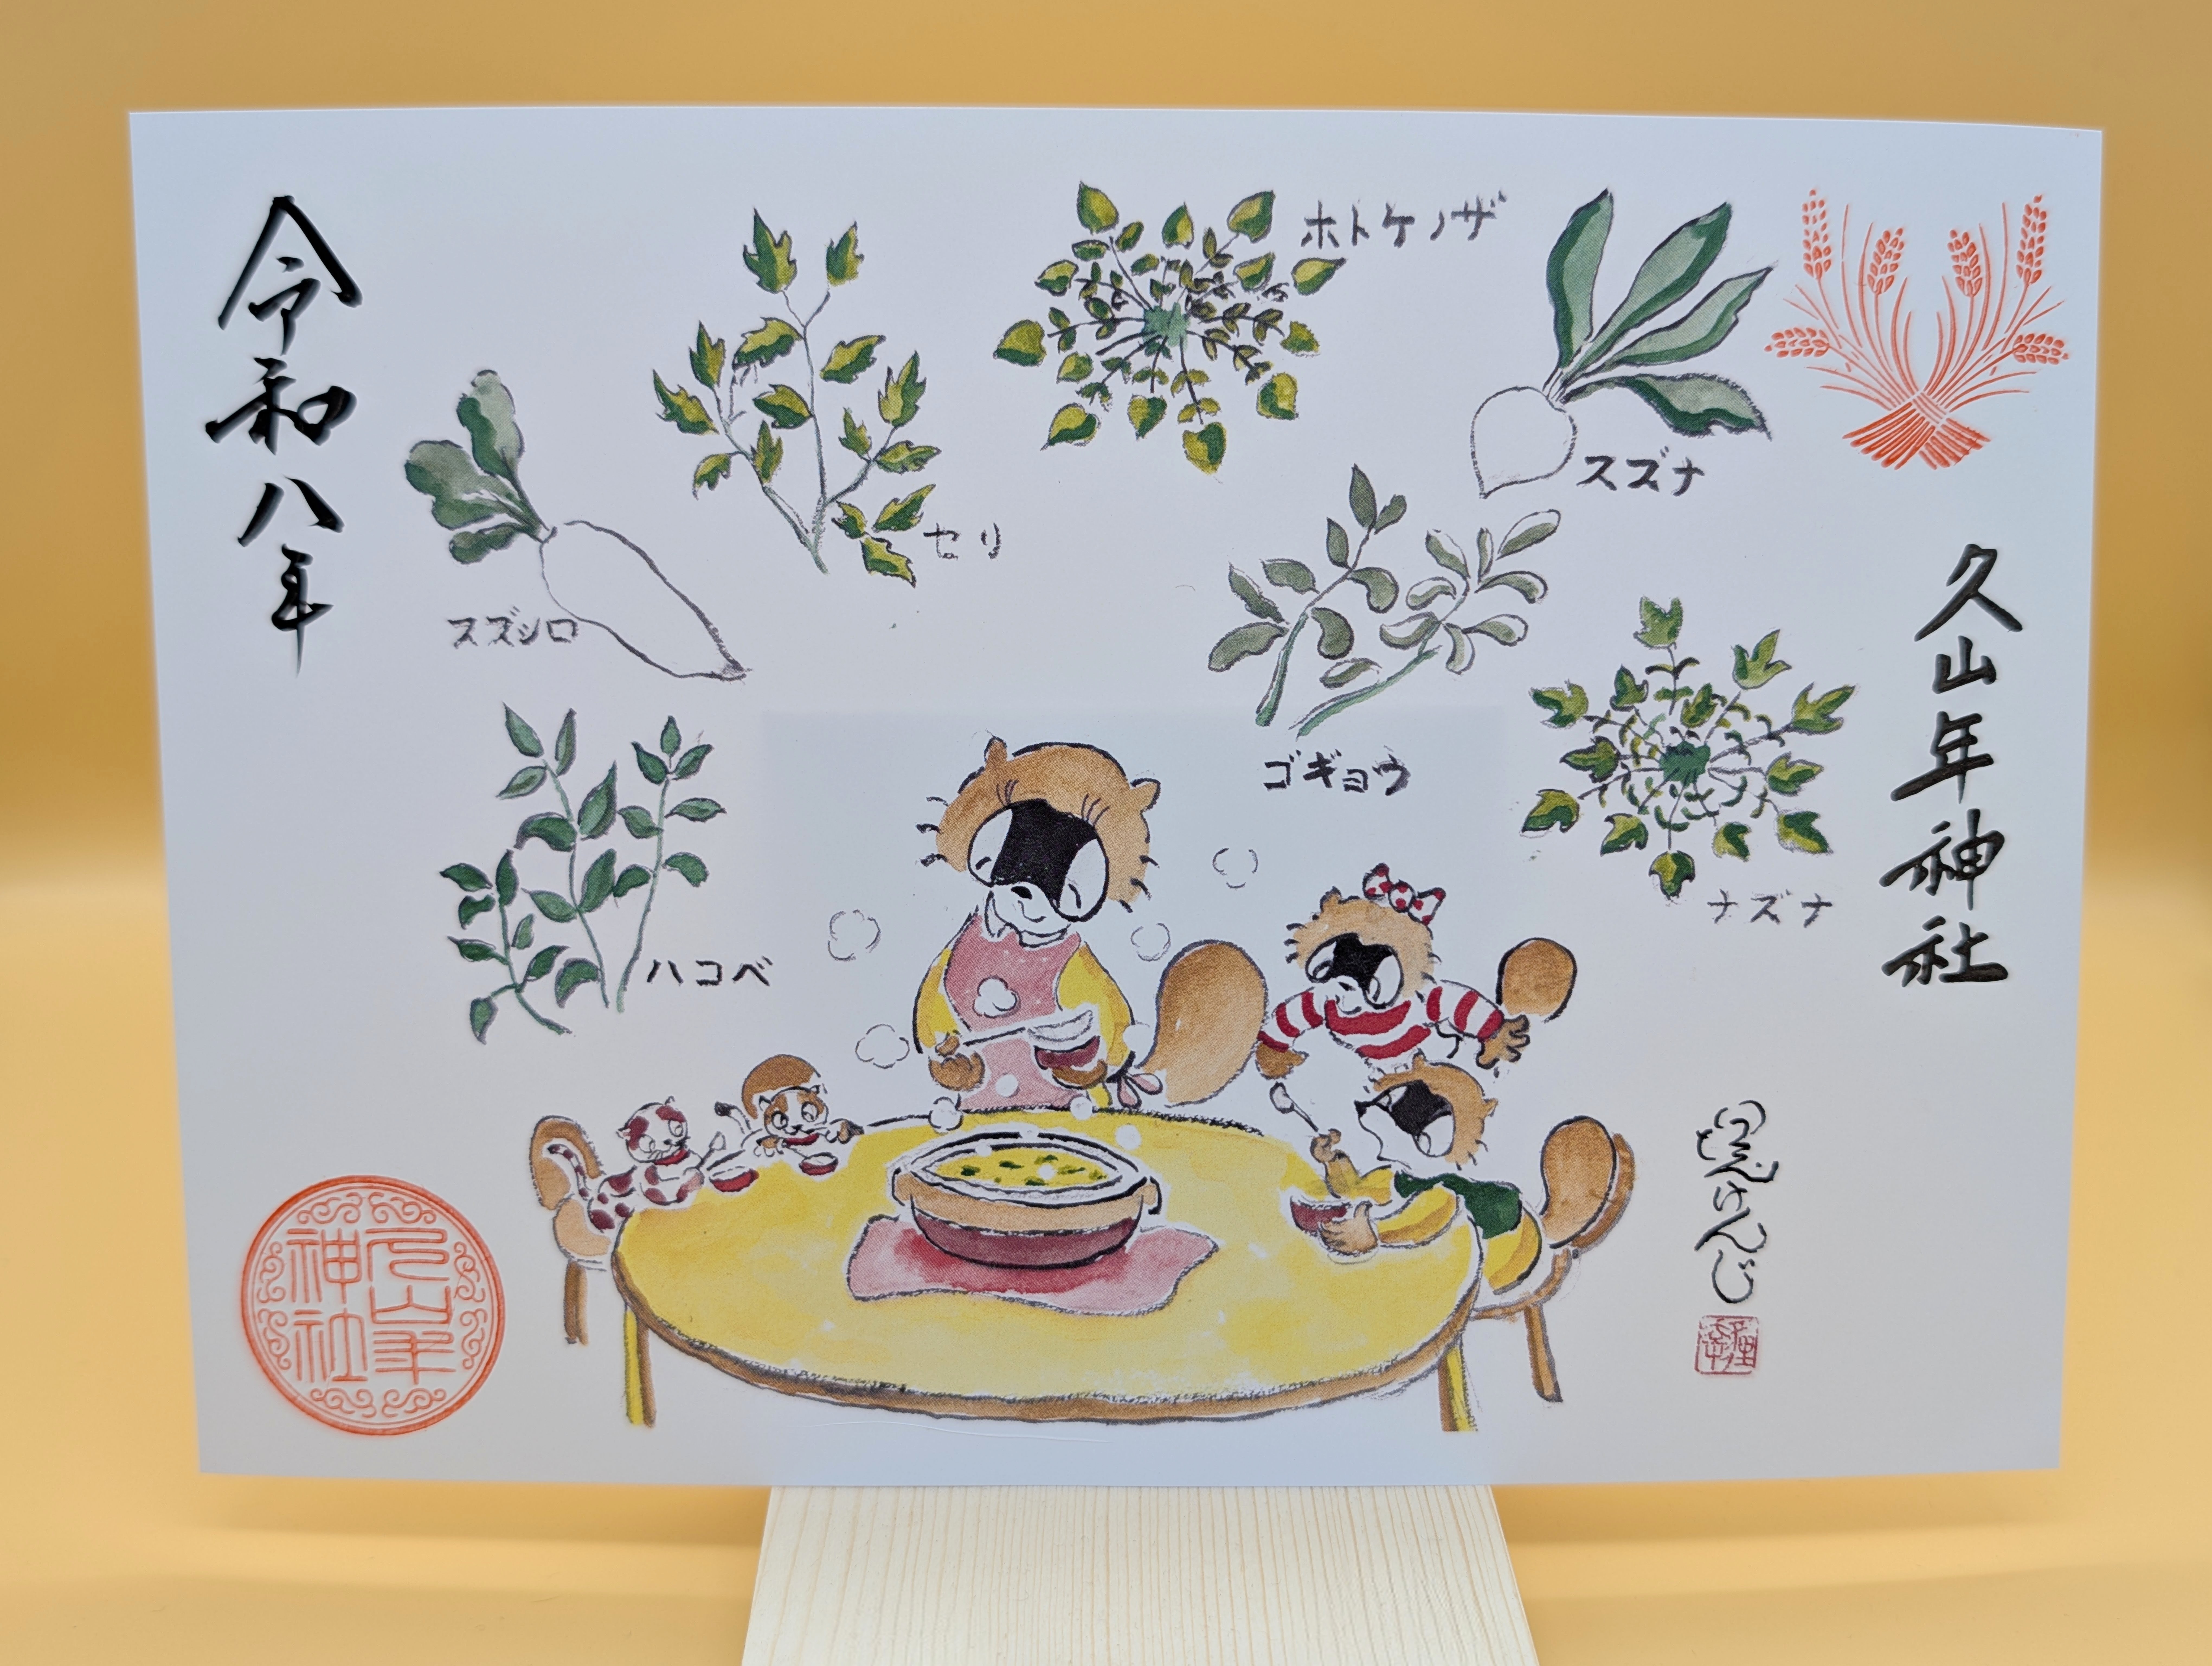 久山年神社
スズナ
ホトケノザ
セリ
スズシロ
ゴギョウ
ナズナ
ハコベ
令和八年
久山年
神社